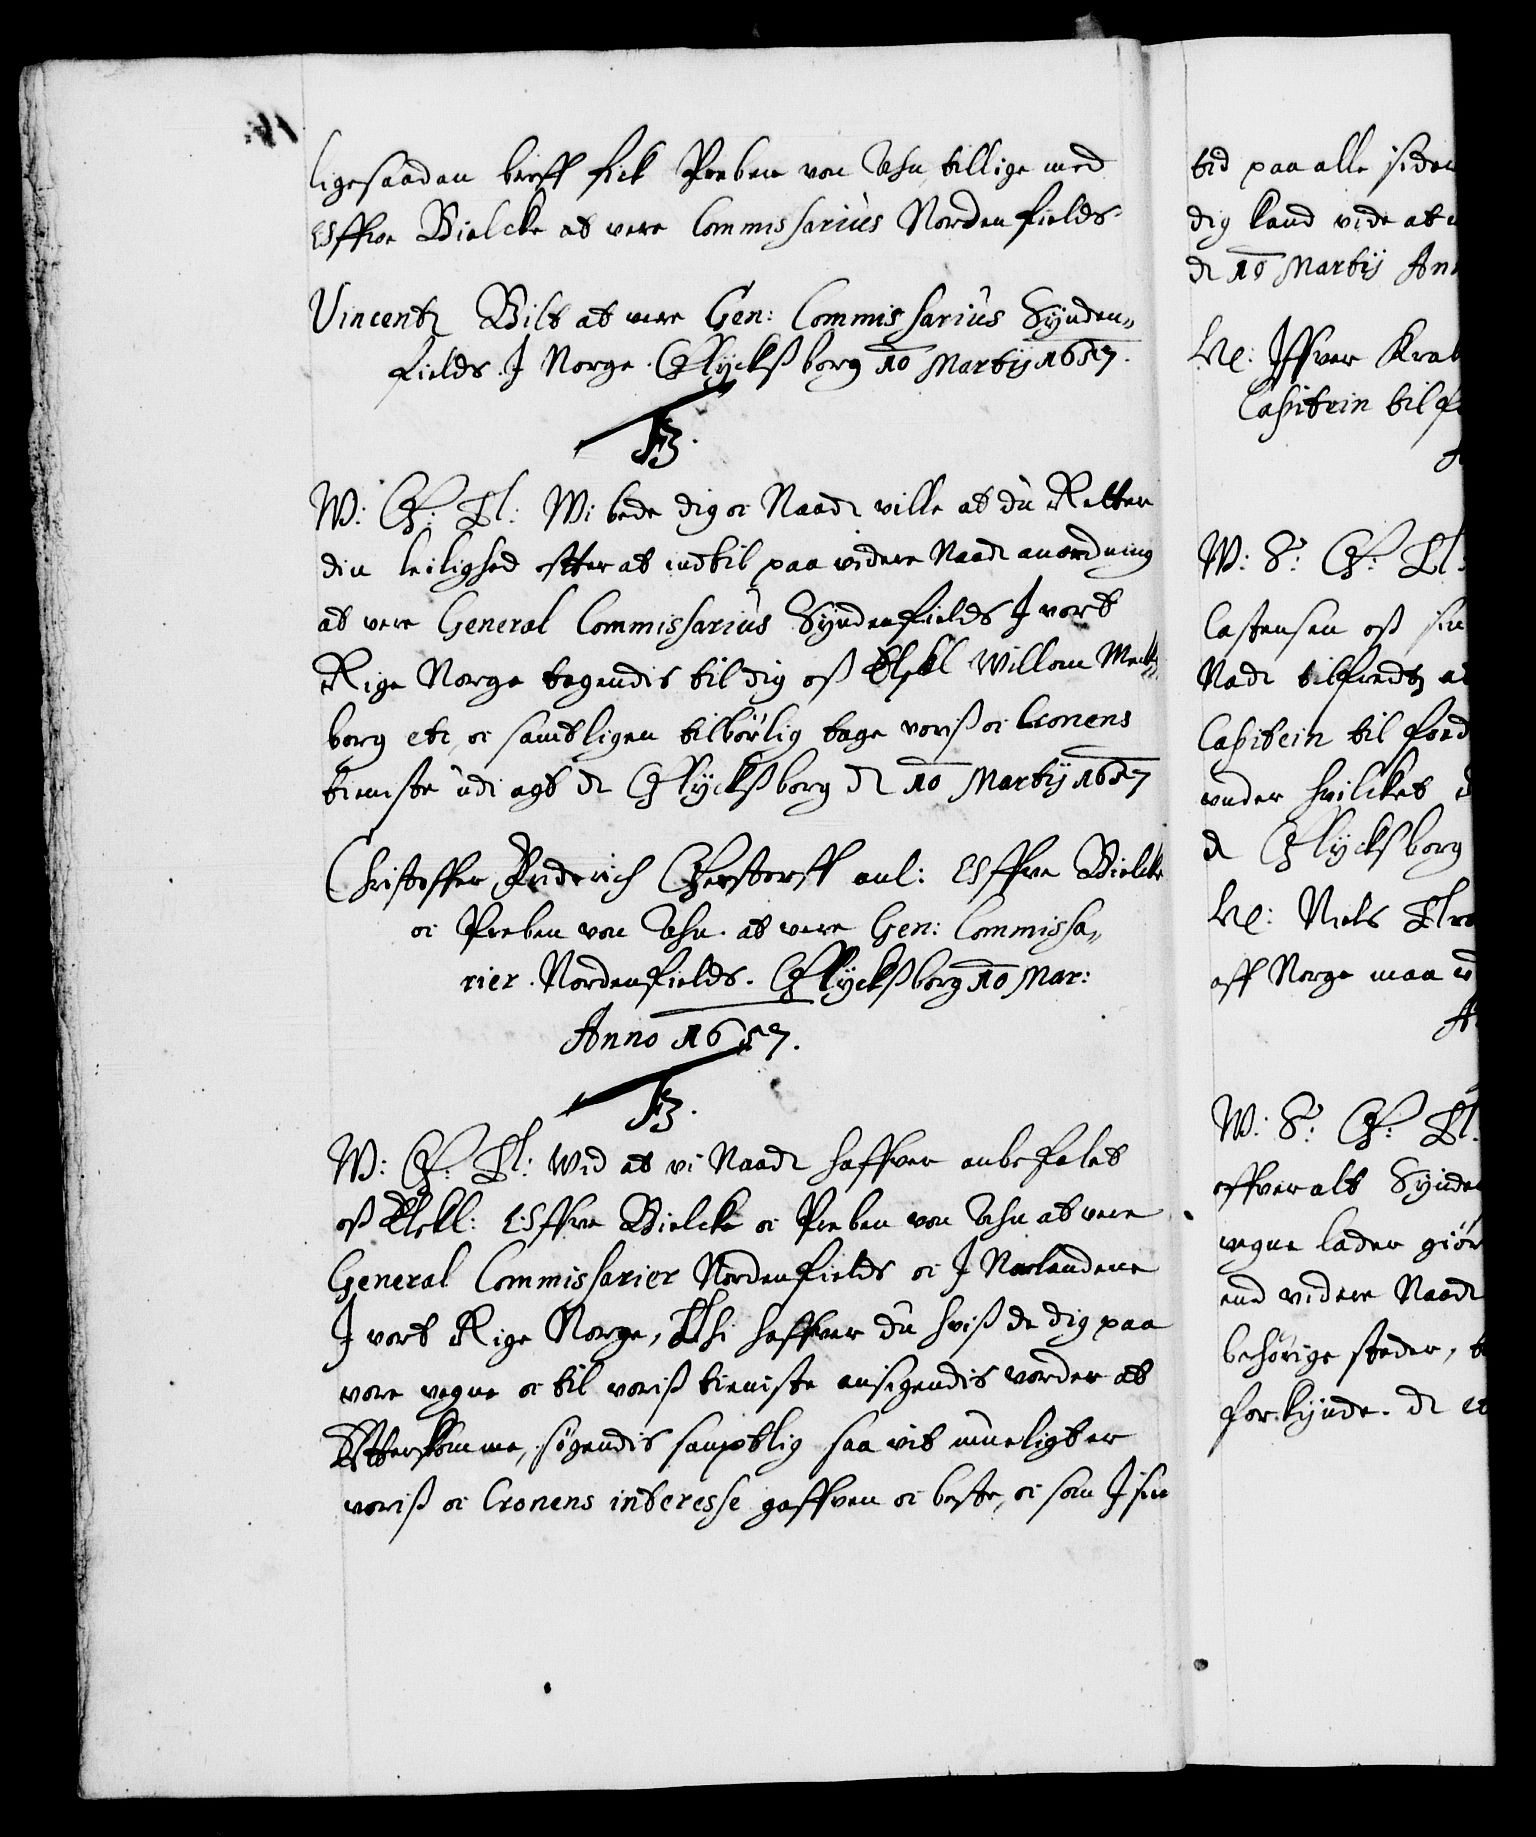 ligesaadan breff fick Preben von Ahn tillige med
Offue Bielcke at vere Commissarius Nordenfields
Vincentz Bilt at vere Gen: Commissarius Synden„
fields J Norge. Glycksborg 10 Martij 1657.
F3.
W: G: Tl: Wi bede dig oc Naadt ville at du Retter
din leilighed effter at indtil paa videre Naadt anordning
at vere General Commissarius Syndenfields J vort
Rige Norge tagendis til dig oss Elskl Willom Meck„
borg etc oc samtligen tilbörlig tage voriss oc Cronens
tieniste udi agt dt Glycksborg dt 10 Martij 1657
Christoffer Friderich Gersterff anl: Offue Bielcke
oc Preben von Ahn. at vere Gen: Commissa„
rier. Nordenfields. Glycksborg 10 Mar:
Anno 1657.
F3.
W: G: Tl: Wid at vi Naadt haffver anbefalet
oss Elskl: Offue Bielcke oc Preben von Ahn at vere
General Commissarier Nordenfields oc J Norlandene
J vort Rige Norge, Thi haffver du hviss de dig paa
vore vegne oc til voriss tieniste ansigendis vorder at
Effterkomme, søgendis samptlig saa vit mueligt er
voriss oc Cronens interesse gaffven oc beste, oc som J sin
tid paa alle siden
dig kand vide at
dt 10 Martij An
Iffver Krab
Capitein til
W: S: G: Tl:
Castensen oss sin
Nadt tilfredtz at
Capitein til ford
under huilcket
dt Glycksborg
Niels
aff Norge maa
A
W: S: G: Tl.
offveralt Synden
vegne lader giör
end videre Naadt
behörige steder,
forkynde. dt